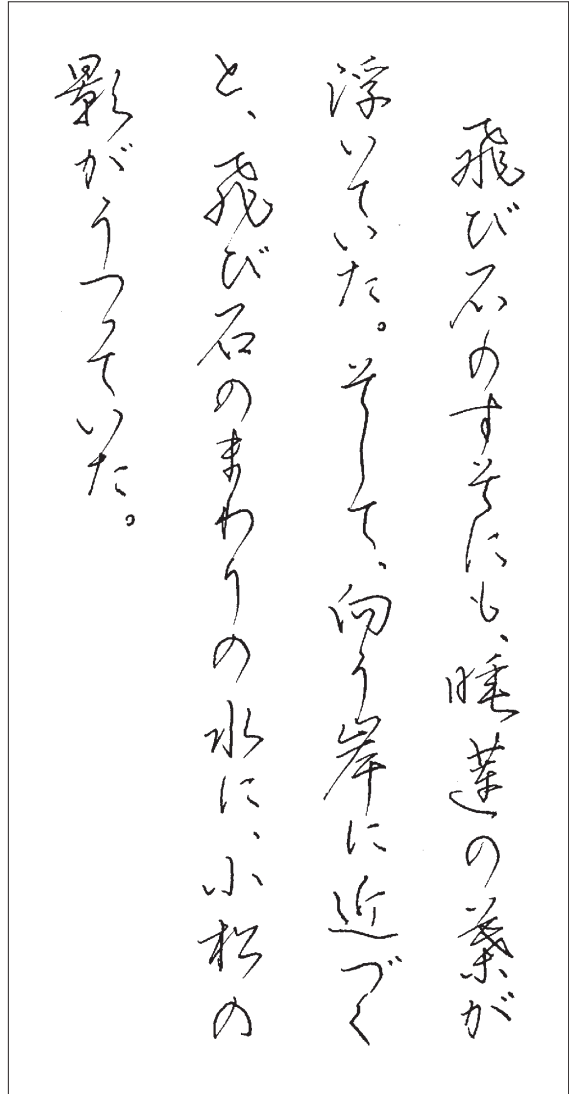 飛び石のすそにも、睡蓮の葉が
浮いていた。そして、向う岸に近づく
と、飛び石のまわりの水に、小松の
影がうつっていた。